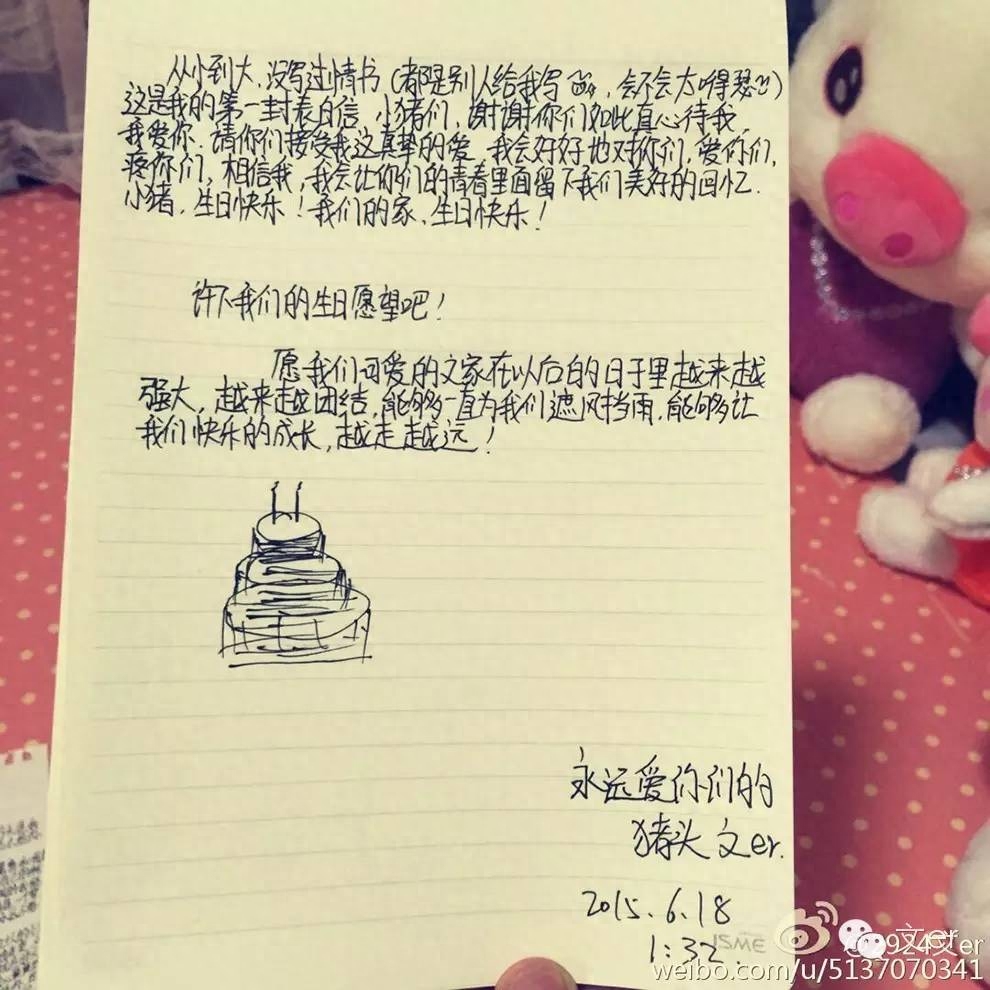 从小到大,没写过情书(都是别人给我写,会不会太嘚瑟)
这是我的第一封表白信。小猪们,谢谢你们如此真心待我,
我爱你.请你们接受我这真挚的爱.我会好好地对你们,爱你们,
疼你们,相信我,我会让你们的青春里面留下我们美好的回忆.
小猪,生日快乐!我们的家,生日快乐!
许下我们的生日愿望吧!
愿我们可爱的文家在以后的日子里越来越
强大,越来越团结,能够一直为我们遮风挡雨,能够让
我们快乐的成长,越走越远!
永远爱你们的
猪头 文er.
2015.6.18
1:32.
ISME
文er
weibo.com/u/5137070341